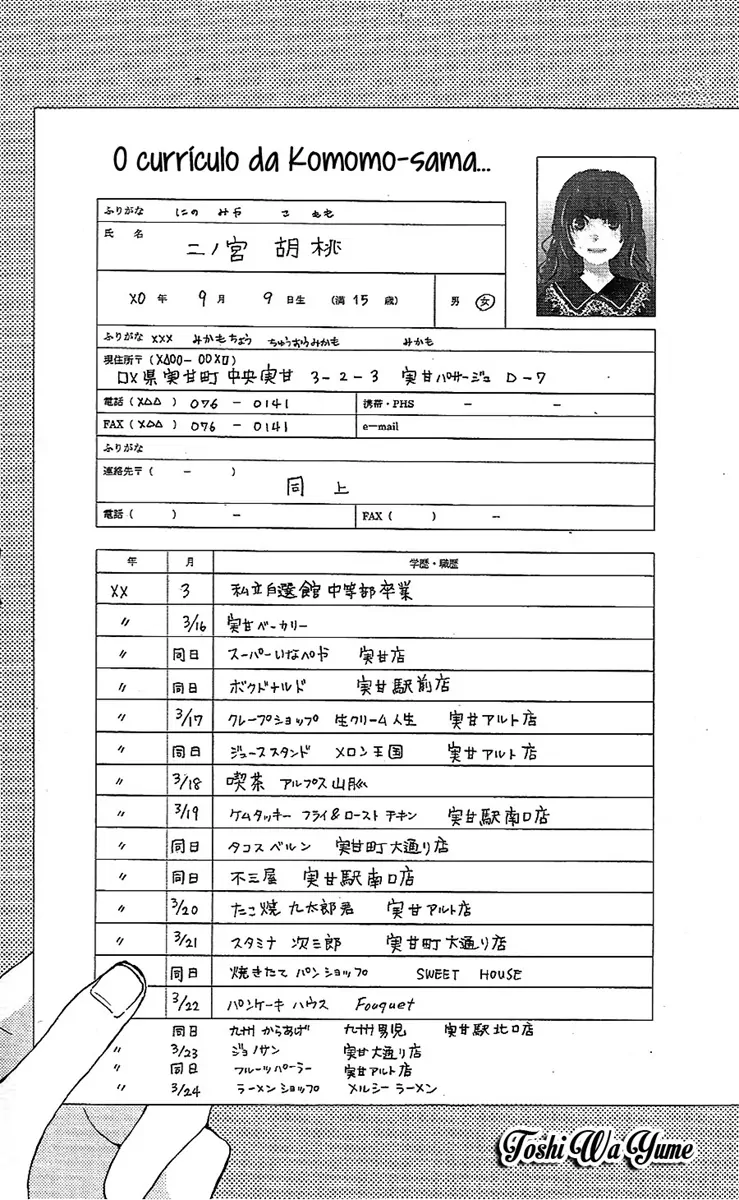 O currículo da Komomo-sama...
ふりがな にの みや こ もも
氏 名 二ノ宮 胡桃
X0 年 9 月 9 日生 (満 15 歳) 男 女
ふりがな XXX みかもちょう ちゅうおうみかも みかも
現住所〒(X△00-00X□)
□X県実甘町中央実甘 3-2-3 実甘パサージュ D-7
電話 (X△△) 076 - 0141 携帯・PHS - -
FAX (X△△) 076 - 0141 e-mail
ふりがな
連絡先〒( - )
同 上
電話 ( ) - FAX ( ) -
年 月 学歴・職歴
XX 3 私立自選館中等部卒業
〃 3/16 実甘ベーカリー
〃 同日 スーパーいなぺや 実甘店
〃 同日 ボクドナルド 実甘駅前店
〃 3/17 クレープショップ 生クリーム人生 実甘アルト店
〃 同日 ジューススタンド メロン王国 実甘アルト店
〃 3/18 喫茶 アルプス山脈
〃 3/19 ケムタッキー フライ&ロースト チキン 実甘駅南口店
〃 同日 タコス ベルン 実甘町大通り店
〃 同日 不三屋 実甘駅南口店
〃 3/20 たこ焼 九太郎君 実甘アルト店
〃 3/21 スタミナ 次三郎 実甘町大通り店
同日 焼きたて パンショップ SWEET HOUSE
3/22 パンケーキ ハウス Fouquet
同日 九州 からあげ 九州男児 実甘駅北口店
〃 3/23 ジョノサン 実甘大通り店
〃 同日 フルーツパーラー 実甘アルト店
〃 3/24 ラーメンショップ メルシー ラーメン
Toshi Wa Yume